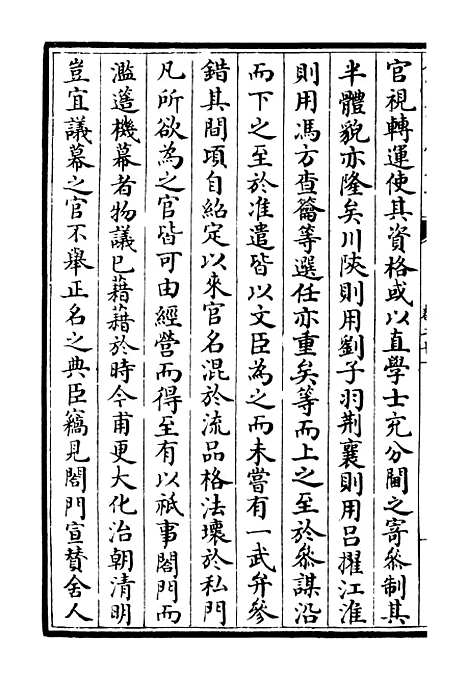 官視轉運使其資格或以直學士充分閫之寄叅制其
半體貌亦隆矣川陝則用劉子羽荆襄則用吕擢江淮
則用馮方查籥等選任亦重矣等而上之至於叅謀沿
而下之至於准遣皆以文臣為之而未嘗有一武弁參
錯其間項自紹定以來官名混於流品格法壞於私門
凡所欲為之官皆可由經營而得至有以祇事閤門而
濫簉機幕者物議已藉藉於時今甫更大化治朝清明
豈宜議幕之官不舉正名之典臣竊見閤門宣賛舍人